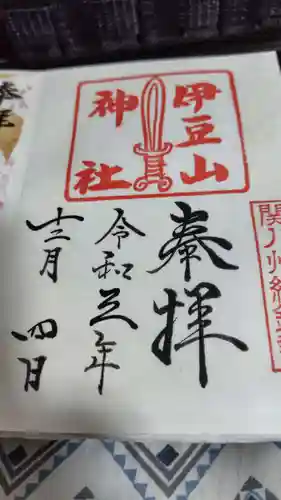 関八州総
奉拝
伊豆山
神社
令和五年
十二月
四日